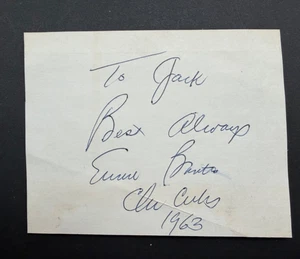 To Jack
Best Always
Ernie Banks
Chi Cubs
1963